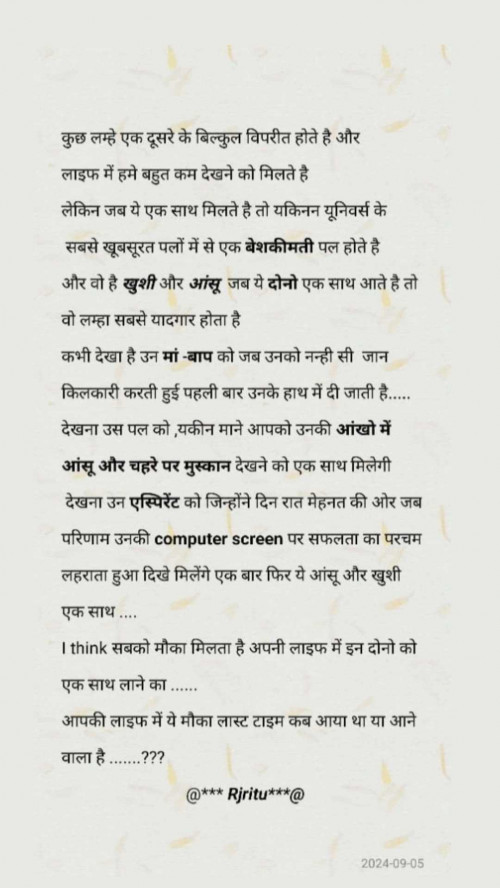 कुछ लम्हे एक दूसरे के बिल्कुल विपरीत होते है और
लाइफ में हमे बहुत कम देखने को मिलते है
लेकिन जब ये एक साथ मिलते है तो यकिनन यूनिवर्स के
सबसे खूबसूरत पलों में से एक बेशकीमती पल होते है
और वो है खुशी और आंसू जब ये दोनो एक साथ आते है तो
वो लम्हा सबसे यादगार होता है
कभी देखा है उन मां -बाप को जब उनको नन्ही सी जान
किलकारी करती हुई पहली बार उनके हाथ में दी जाती है.....
देखना उस पल को ,यकीन माने आपको उनकी आंखो में
आंसू और चहरे पर मुस्कान देखने को एक साथ मिलेगी
देखना उन एस्पिरेंट को जिन्होंने दिन रात मेहनत की ओर जब
परिणाम उनकी computer screen पर सफलता का परचम
लहराता हुआ दिखे मिलेंगे एक बार फिर ये आंसू और खुशी
एक साथ ....
I think सबको मौका मिलता है अपनी लाइफ में इन दोनो को
एक साथ लाने का ......
आपकी लाइफ में ये मौका लास्ट टाइम कब आया था या आने
वाला है .......???
@*** Rjritu***@
2024-09-05